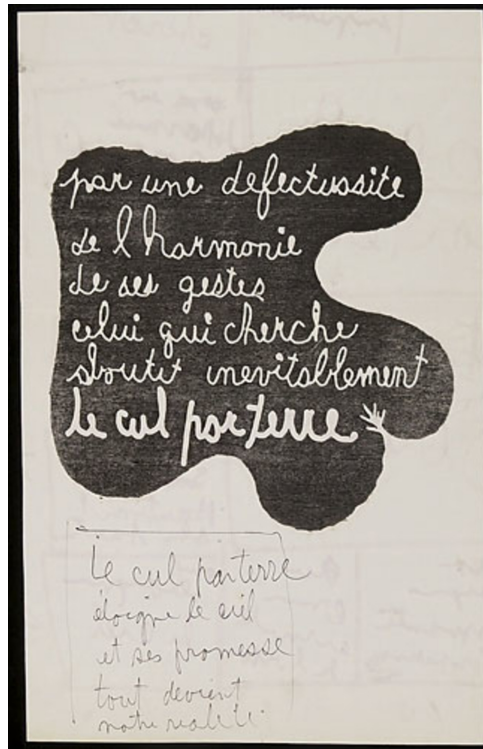 par une defectussite
de l harmonie
de ses gestes
celui qui cherche
aboutit inevitablement
le cul par terre
Le cul par terre
éloigne le ciel
et ses promesse
tout devient
notre realité.